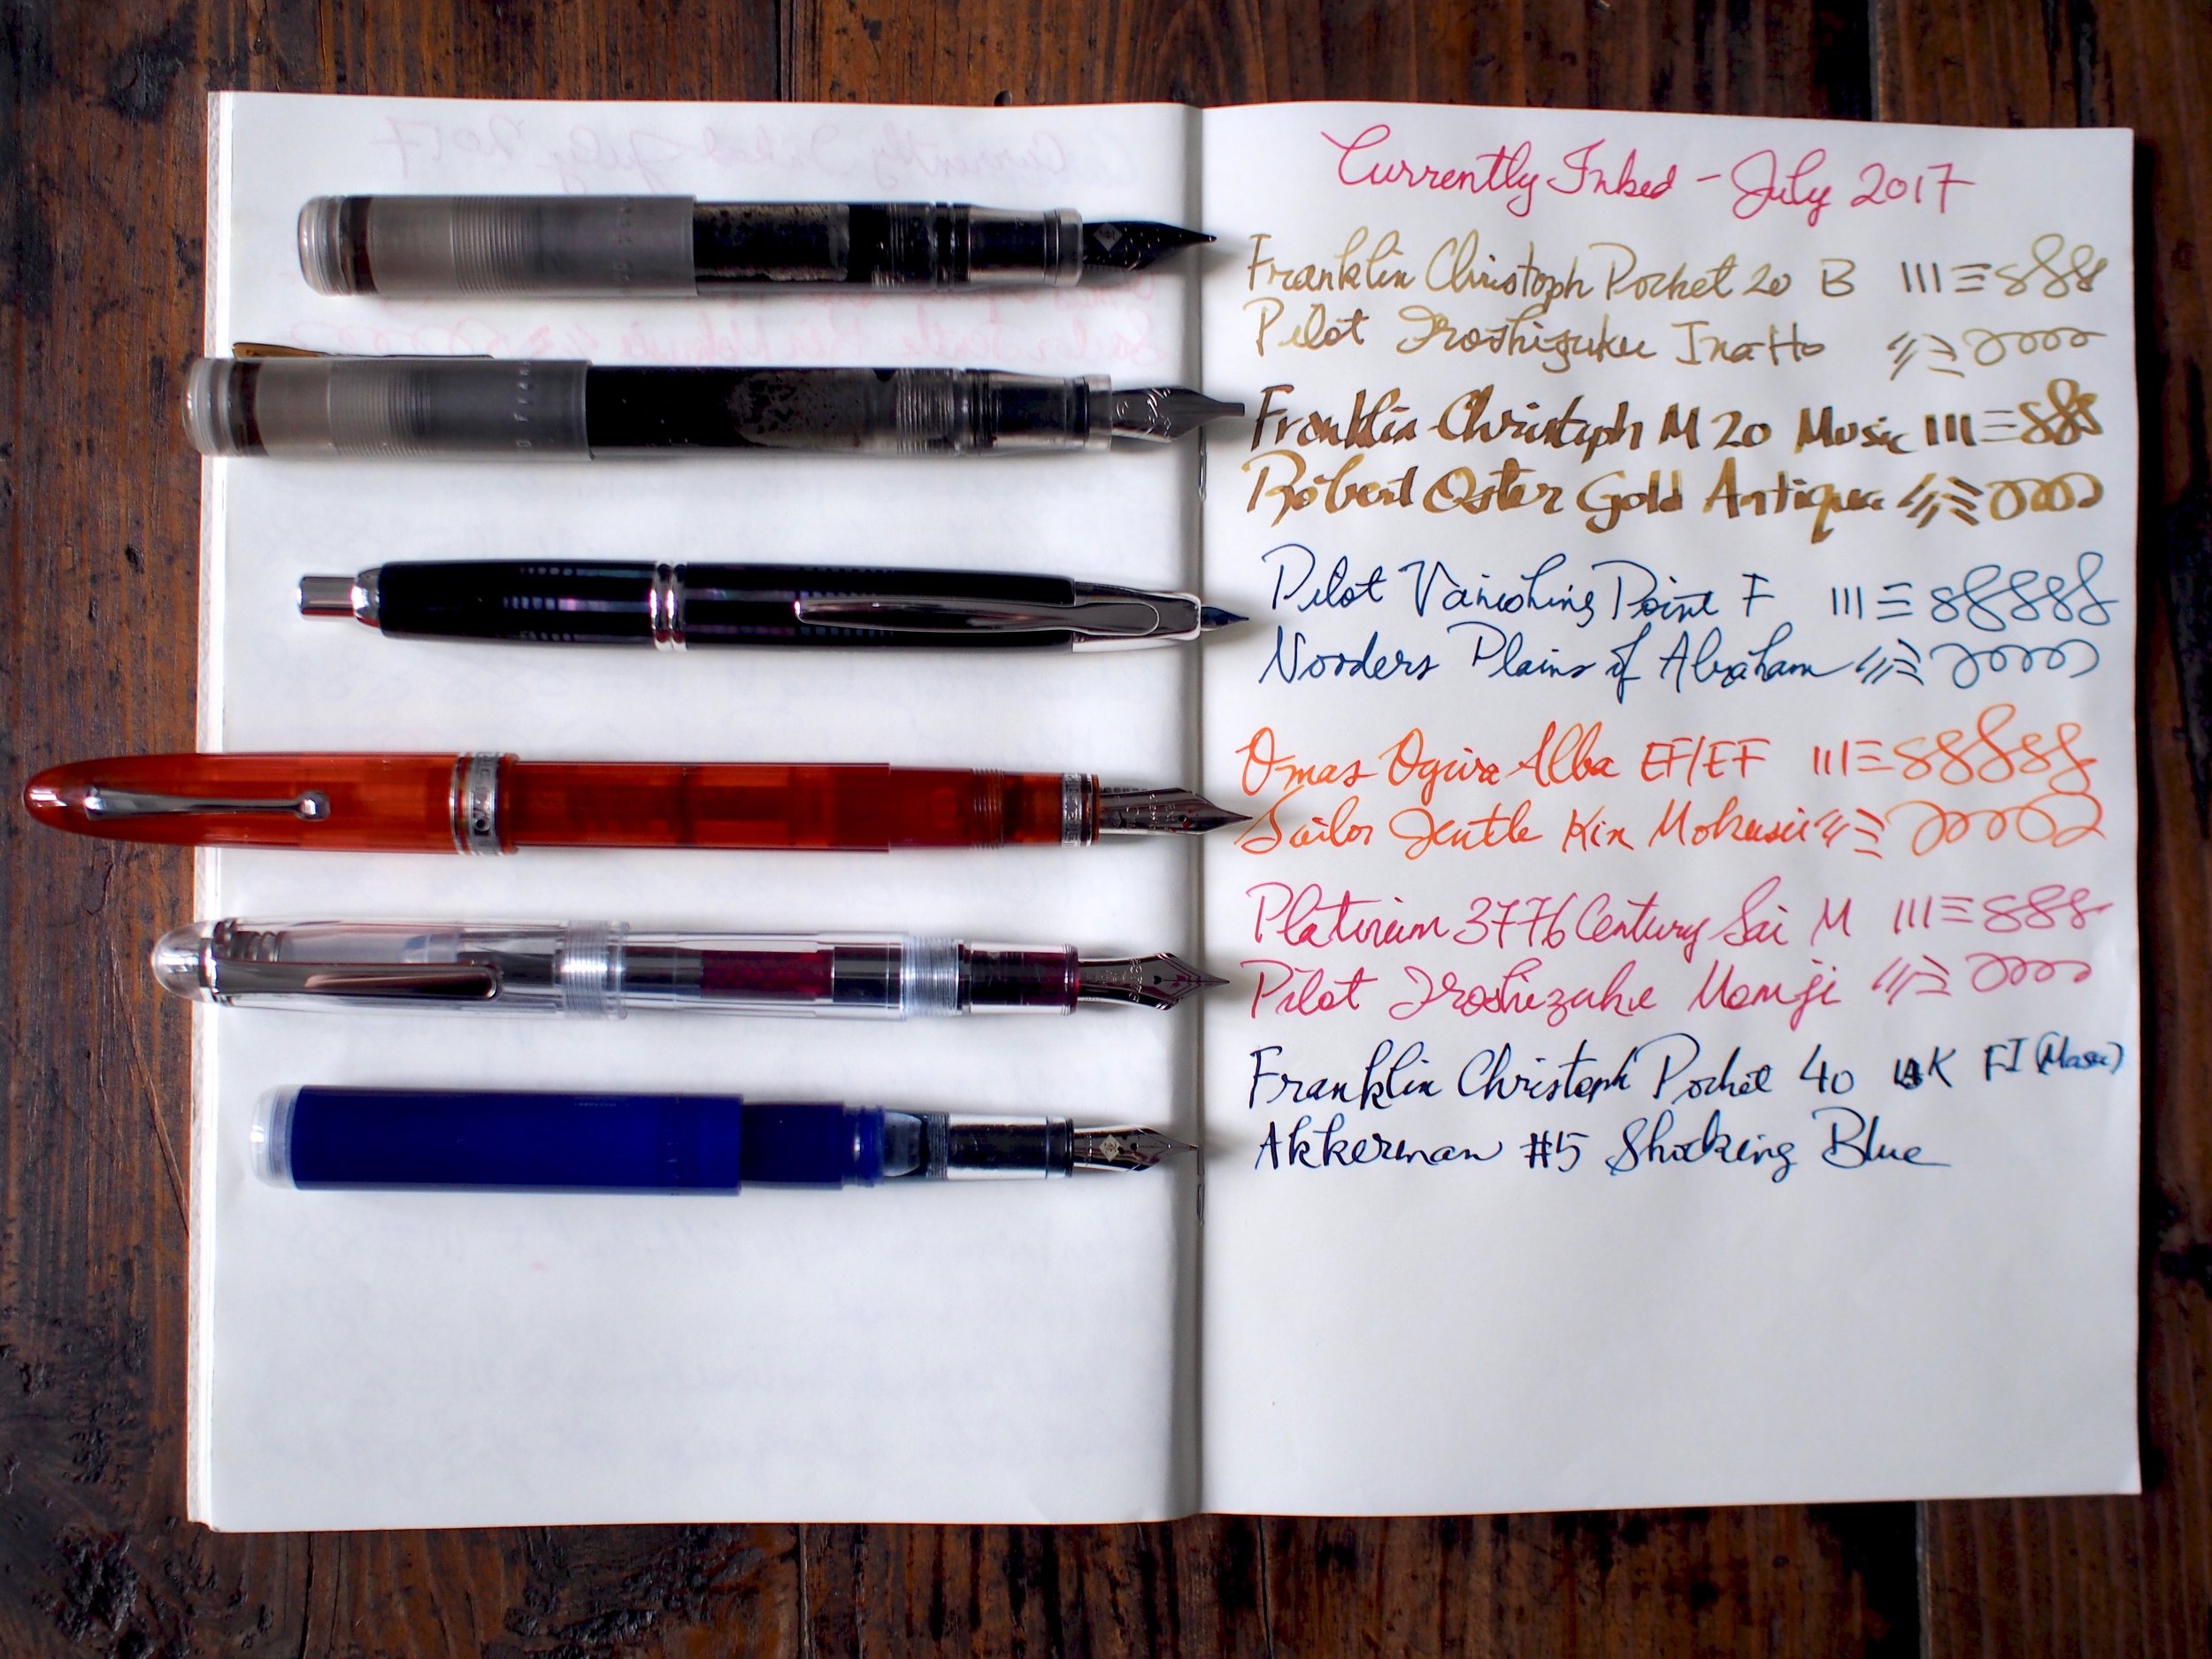 Currently Inked - July 2017
Franklin Christoph Pocket 20 B
Pilot Iroshizuku Ina-Ho
Franklin-Christoph M 20 Music
Robert Oster Gold Antiqua
Pilot Vanishing Point F
Noodlers Plains of Abraham
Omas Ogiva Alba EF/EF
Sailor Jentle Kin Mokusei
Platinum 3776 Century Sai M
Pilot Iroshizuku Momiji
Franklin Christoph Pocket 40 FI (Masu)
Akkerman #5 Shocking Blue